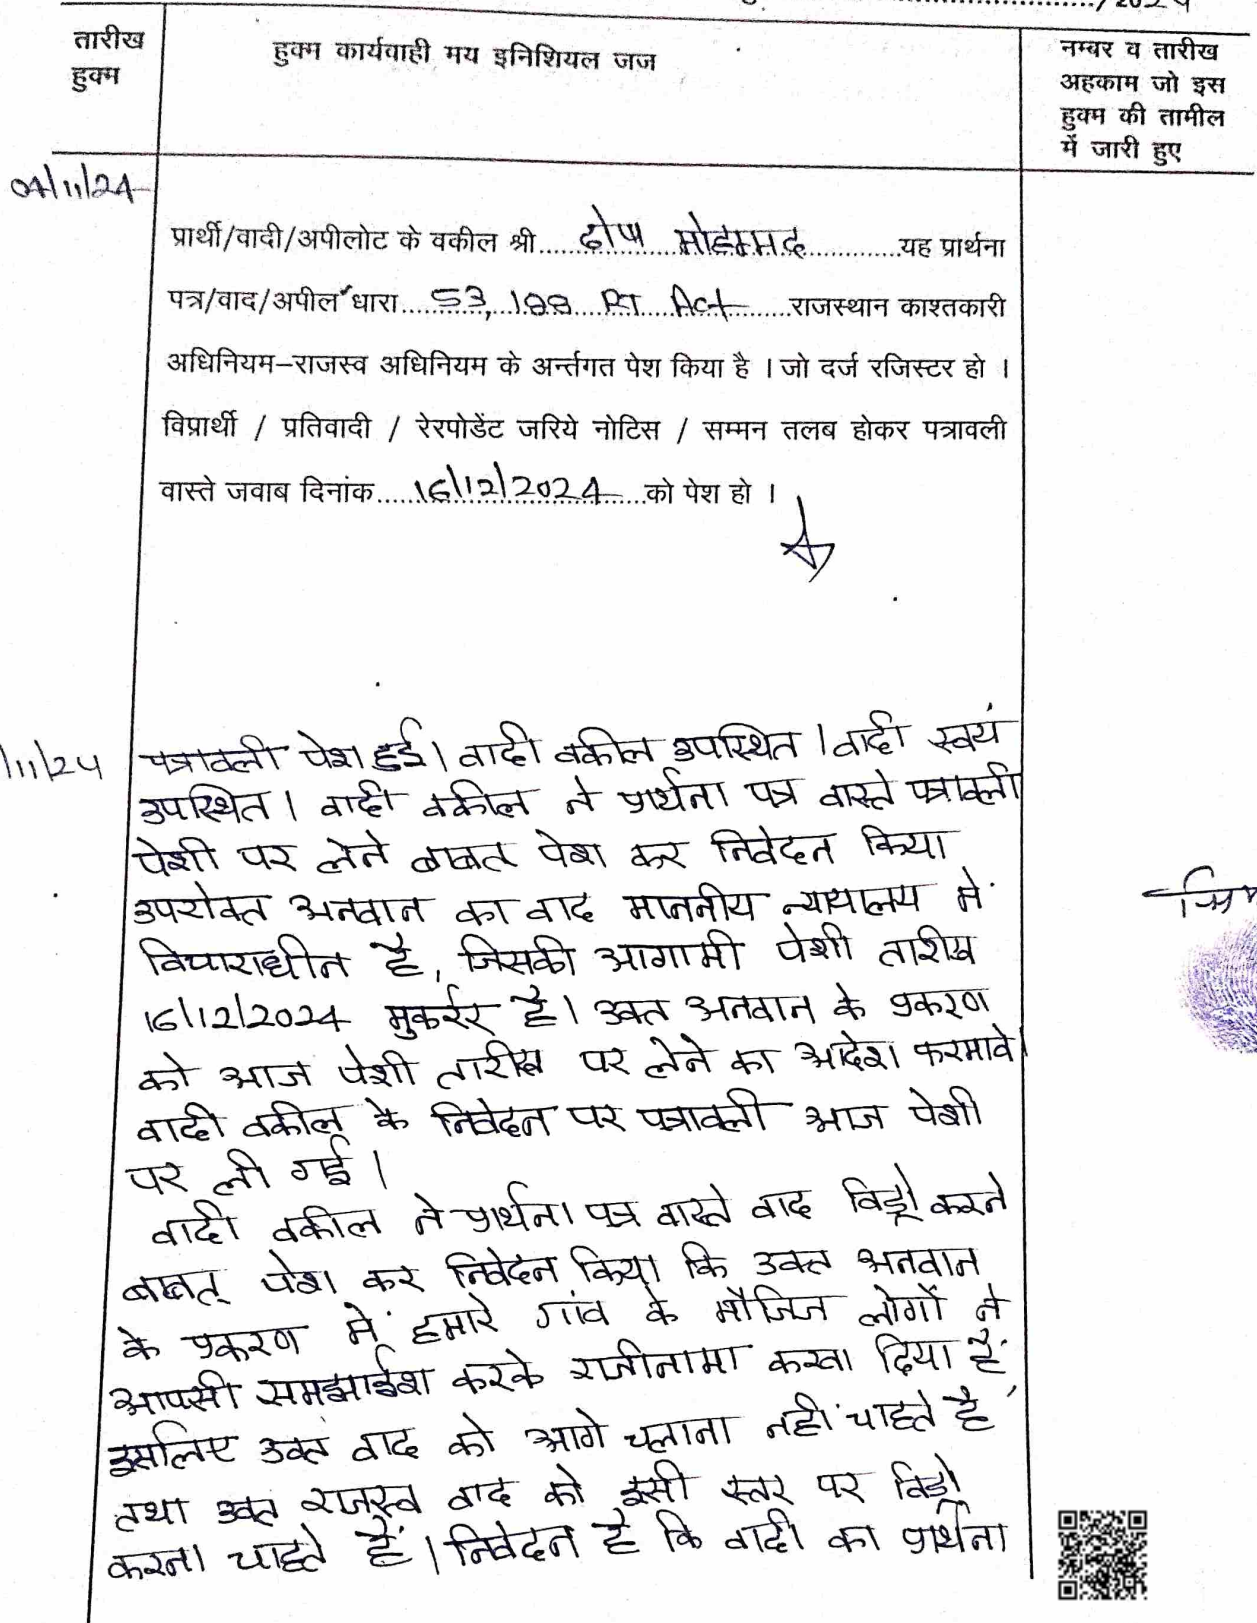 /2024
तारीख
हुक्म
हुक्म कार्यवाही मय इनिशियल जज
नम्बर व तारीख
अहकाम जो इस
हुक्म की तामील
में जारी हुए
04/11/24
प्रार्थी/वादी/अपीलोट के वकील श्री.....दोस्त मोहम्मद.....यह प्रार्थना
पत्र/वाद/अपील धारा.....53, 188 RT Act.....राजस्थान काश्तकारी
अधिनियम–राजस्व अधिनियम के अर्न्तगत पेश किया है । जो दर्ज रजिस्टर हो ।
विप्रार्थी / प्रतिवादी / रेरपोडेंट जरिये नोटिस / सम्मन तलब होकर पत्रावली
वास्ते जवाब दिनांक.....16/12/2024.....को पेश हो ।
/11/24
पत्रावली पेश हुई। वादी वकील उपस्थित । वादी स्वयं
उपस्थित। वादी वकील ने प्रार्थना पत्र वास्ते पत्रावली
पेशी पर लेने बाबत पेश कर निवेदन किया
उपरोक्त अनवान का वाद माननीय न्यायालय में
विचाराधीन है, जिसकी आगामी पेशी तारीख
16/12/2024 मुकर्रर है। उक्त अनवान के प्रकरण
को आज पेशी तारीख पर लेने का आदेश फरमावे।
वादी वकील के निवेदन पर पत्रावली आज पेशी
पर ली गई।
वादी वकील ने प्रार्थना पत्र वास्ते वाद विड्रो करने
बाबत् पेश कर निवेदन किया कि उक्त अनवान
के प्रकरण में हमारे गांव के मौजिज लोगों ने
आपसी समझाईश करके राजीनामा करवा दिया है,
इसलिए उक्त वाद को आगे चलाना नहीं चाहते है
तथा उक्त राजस्व वाद को इसी स्तर पर विड्रो
करना चाहते हैं। निवेदन है कि वादी का प्रार्थना